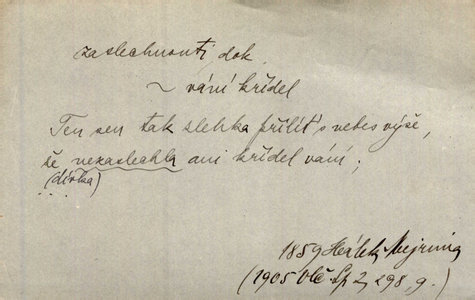 zaslechnouti, dok.
~ vání křídel
Ten sen tak zlehka přilít' s nebes výše,
že nezaslechla ani křídel vání;
(dívka)
1859 Hálek, Mejrima
(1905 Vlč. Sp 2, 298, 9.)